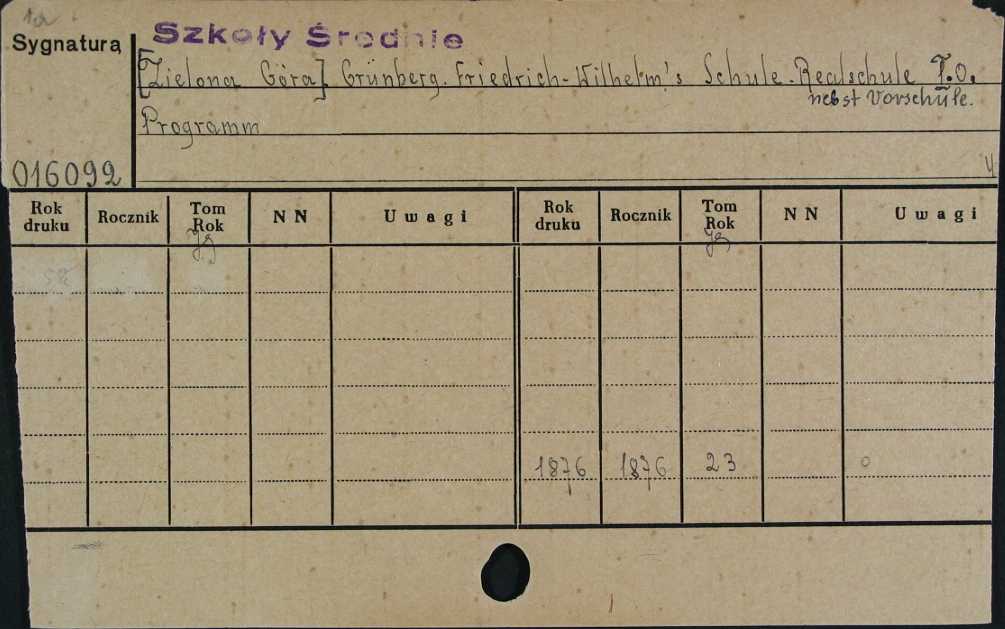 1a
Szkoły Średnie
Sygnatura
[Zielona Góra] Grünberg. Friedrich-Wilhelm's Schule. Realschule I.O.
nebst Vorschule.
Programm
016092
4
Rok druku Rocznik Tom Rok NN Uwagi Rok druku Rocznik Tom Rok NN Uwagi
Jg Jg
1876 1876 23 0